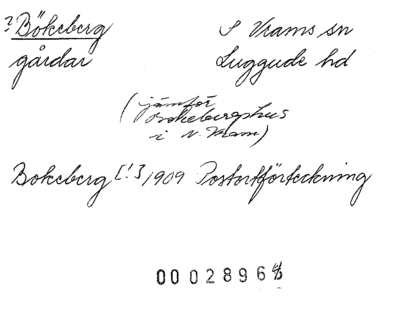 ? Bökeberg S Vrams sn
gårdar Luggude hd
(jämför
Bökebergshus
i N. Vram)
Bokeberg [!] 1909 Postortförteckning
0002896